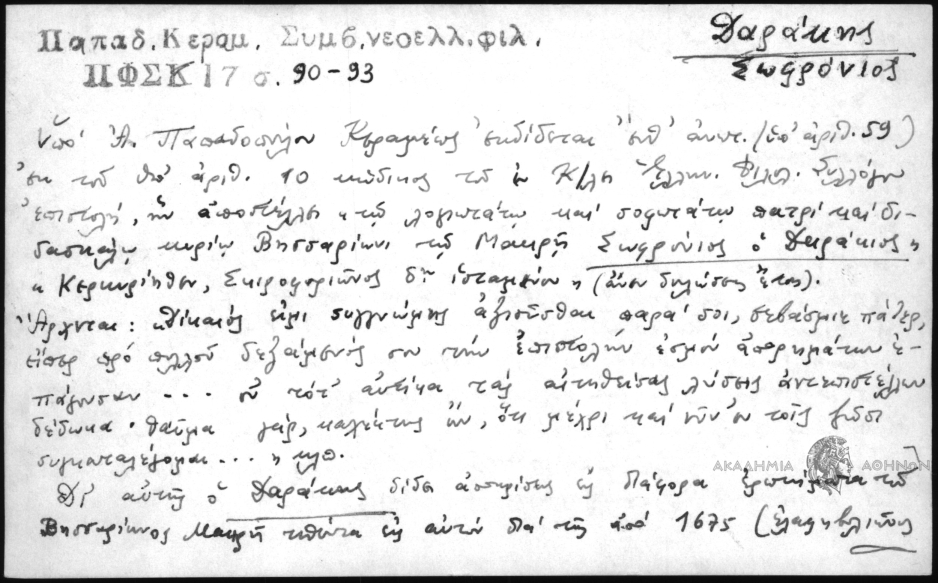 Παπαδ. Κεραμ. Συμβ. νεοελλ. φιλ.
ΠΦΣΚ 17 σ. 90-93
Δαράκης
Σωφρόνιος
Ὑπό Ἀ. Παπαδοπούλου Κεραμέως ἐκδίδεται (ὑπ' ἀριθ. 59)
ἐκ τοῦ ὑπ' ἀριθ. 10 κώδικος τοῦ ἐν Κ/λει Ἑλλην. Φιλολ. Συλλόγου
ἐπιστολή, ἣν ἀποστέλλει "τῷ λογιωτάτῳ καί σοφωτάτῳ πατρί καί δι-
δασκάλῳ κυρίῳ Βησσαρίωνι τῷ Μακρῇ Σωφρόνιος ὁ Δαράκιος"
"Κερκυρίηθεν, Σκιροφοριῶνος δῃ ἱσταμένου" (ἄνευ δηλώσεως ἔτους).
Ἄρχεται: "Δίκαιός εἰμι συγγνώμης ἀξιοῦσθαι παρά σοι, σεβάσμιε πάτερ,
εἴπερ πρό πολλοῦ δεξάμενός σου τήν ἐπιστολήν ἑσμόν ἀπορημάτων ἐ-
πάγουσαν ... οὐ τότ' αὐτίκα τάς αἰτηθείσας λύσεις ἀντεπιστέλλων
δέδωκα· θαῦμα γάρ, καχέκτης ὤν, ὅτι μέχρι καί νῦν ἐν τοῖς ζῶσι
συγκαταλέγομαι ..." κλπ.
Δι' αὐτῆς ὁ Δαράκης δίδει ἀποκρίσεις εἰς διάφορα ἐρωτήματα τοῦ
Βησσαρίωνος Μακρῆ τεθέντα εἰς αὐτόν διά τῆς ἀπό 1675 (ἐλαφηβολιῶνος
ΑΚΑΔΗΜΙΑ ΑΘΗΝΩΝ